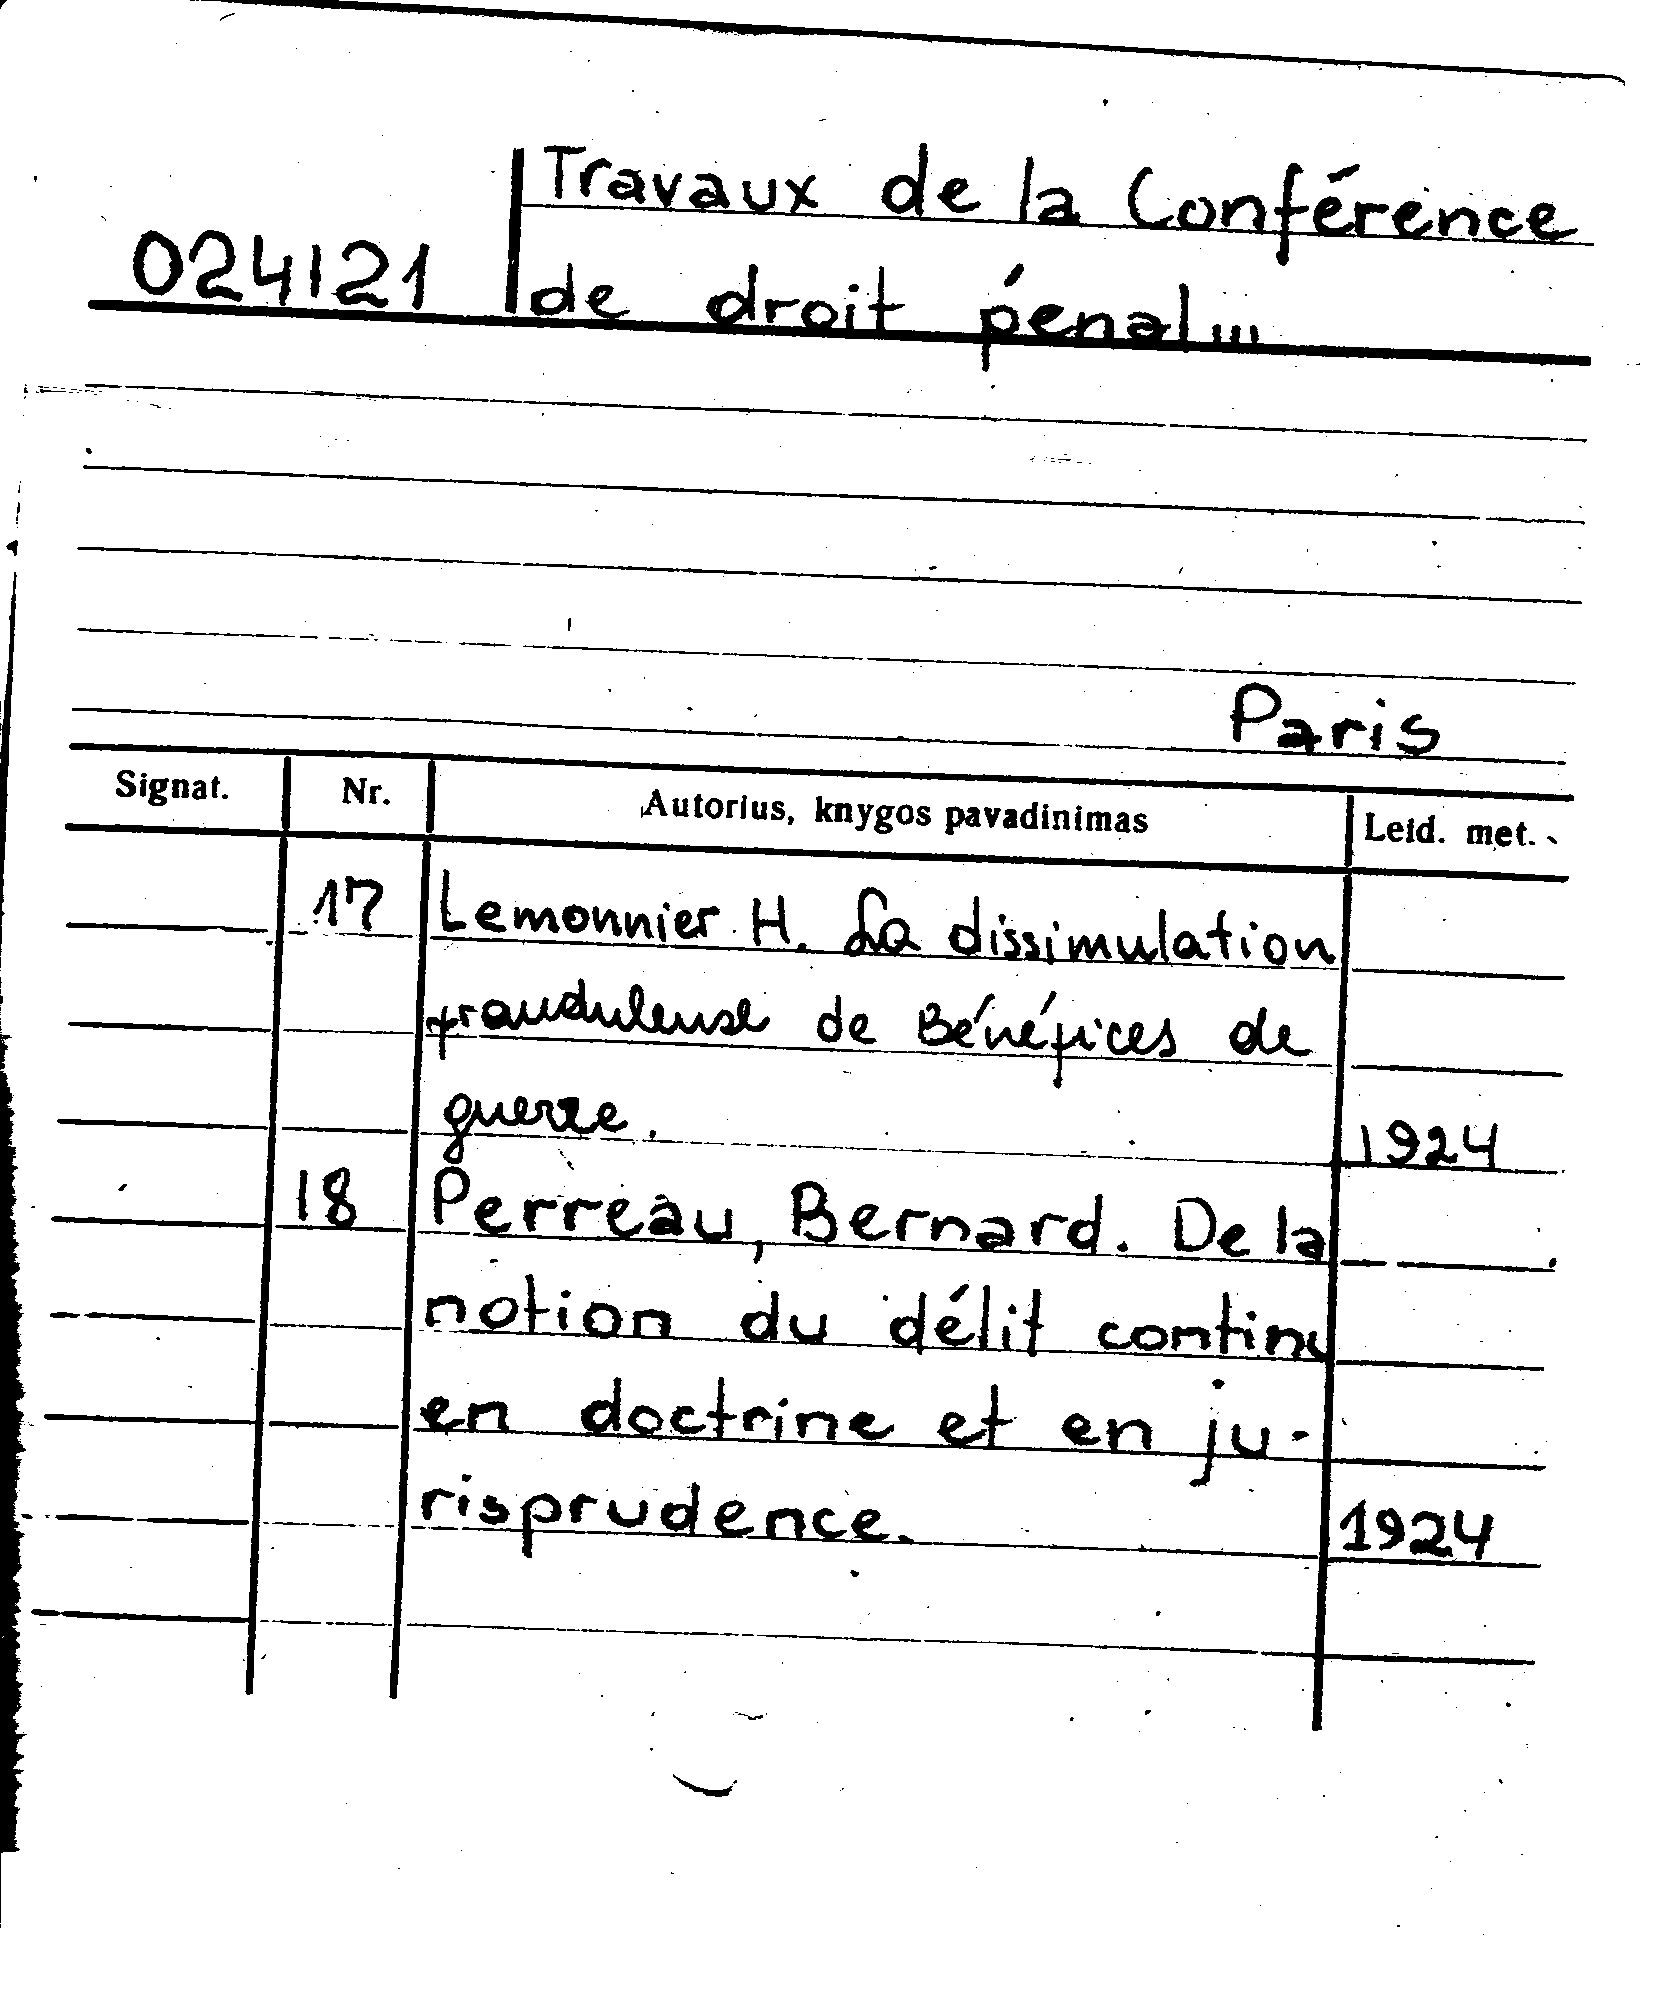 Travaux de la Conférence
024121 de droit pénal...
Paris
Signat. Nr. Autorius, knygos pavadinimas Leid. met.
17 Lemonnier H. La dissimulation
frauduleuse de Bénéfices de
guerre. 1924
18 Perreau, Bernard. De la
notion du délit continu
en doctrine et en ju-
risprudence. 1924